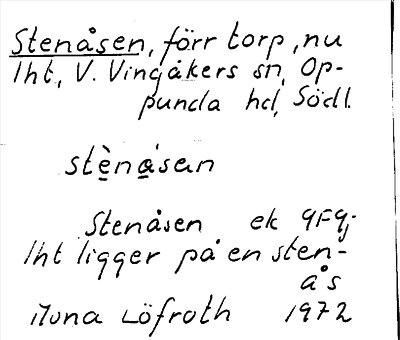 Stenåsen, förr torp, nu
lht, V. Vingåkers sn, Op-
punda hd, Södl.
stènåsan
Stenåsen ek 9F9j
lht ligger på en sten-
ås
Mona Löfroth 1972